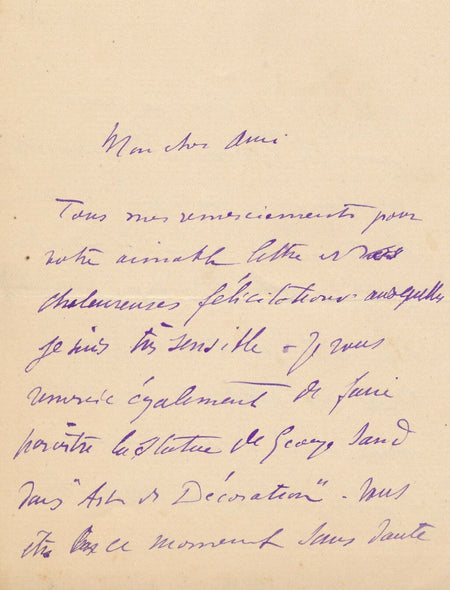 Mon cher Ami
Tous mes remerciements pour
votre aimable lettre et vos
chaleureuses félicitations auxquelles
je suis très sensible - Je vous
remercie également de faire
paroître la statue de George Sand
dans "Art et Décoration" - Vous
êtes en ce moment sans doute